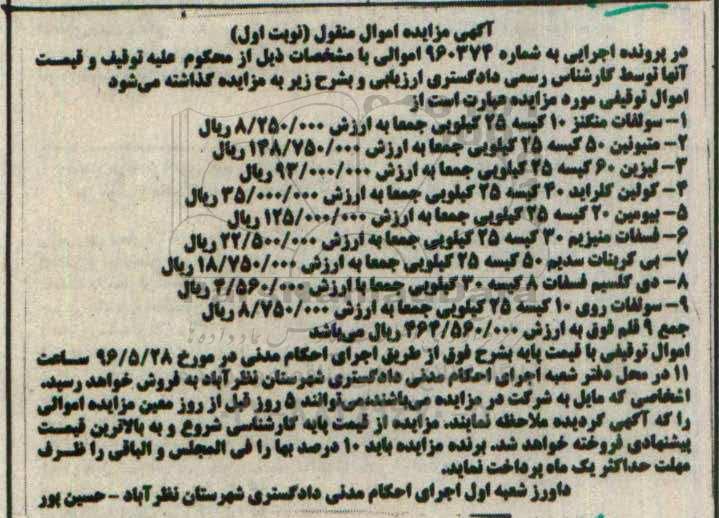 آگهی مزایده اموال منقول (نوبت اول)
در پرونده اجرایی به شماره ۹۶۰۳۷۴ اموالی با مشخصات ذیل از محکوم علیه توقیف و قیمت
آنها توسط کارشناس رسمی دادگستری ارزیابی و بشرح زیر به مزایده گذاشته می‌شود
اموال توقیفی مورد مزایده عبارت است از
۱- سولفات منگنز ۱۰ کیسه ۲۵ کیلویی جمعا به ارزش ۸/۲۵۰/۰۰۰ ریال
۲- متیونین ۵۰ کیسه ۲۵ کیلویی جمعا به ارزش ۱۴۸/۷۵۰/۰۰۰ ریال
۳- لیزین ۶۰ کیسه ۲۵ کیلویی جمعا به ارزش ۹۳/۰۰۰/۰۰۰ ریال
۴- کولین کلراید ۴۰ کیسه ۲۵ کیلویی جمعا به ارزش ۳۵/۰۰۰/۰۰۰ ریال
۵- بیومین ۲۰ کیسه ۲۵ کیلویی جمعا به ارزش ۱۲۵/۰۰۰/۰۰۰ ریال
۶- فسفات منیزیم ۳۰ کیسه ۲۵ کیلویی جمعا به ارزش ۲۲/۵۰۰/۰۰۰ ریال
۷- بی کربنات سدیم ۵۰ کیسه ۲۵ کیلویی جمعا به ارزش ۱۸/۷۵۰/۰۰۰ ریال
۸- دی کلسیم فسفات ۸ کیسه ۳۰ کیلویی جمعا با ارزش ۴/۵۶۰/۰۰۰ ریال
۹- سولفات روی ۱۰ کیسه ۲۵ کیلویی جمعا به ارزش ۸/۷۵۰/۰۰۰ ریال
جمع ۹ قلم فوق به ارزش ۴۶۴/۵۶۰/۰۰۰ ریال می‌باشد
اموال توقیفی با قیمت پایه بشرح فوق از طریق اجرای احکام مدنی در مورخ ۹۶/۵/۲۸ ساعت
۱۱ در محل دفتر شعبه اجرای احکام مدنی دادگستری شهرستان نظرآباد به فروش خواهد رسید.
اشخاصی که مایل به شرکت در مزایده می‌باشند،می‌توانند ۵ روز قبل از روز معین مزایده اموالی
را که آگهی گردیده ملاحظه نمایند. مزایده از قیمت پایه کارشناسی شروع و به بالاترین قیمت
پیشنهادی فروخته خواهد شد. برنده مزایده باید ۱۰ درصد بها را فی المجلس و الباقی را ظرف
مهلت حداکثر یک ماه پرداخت نماید.
داورز شعبه اول اجرای احکام مدنی دادگستری شهرستان نظرآباد - حسین پور